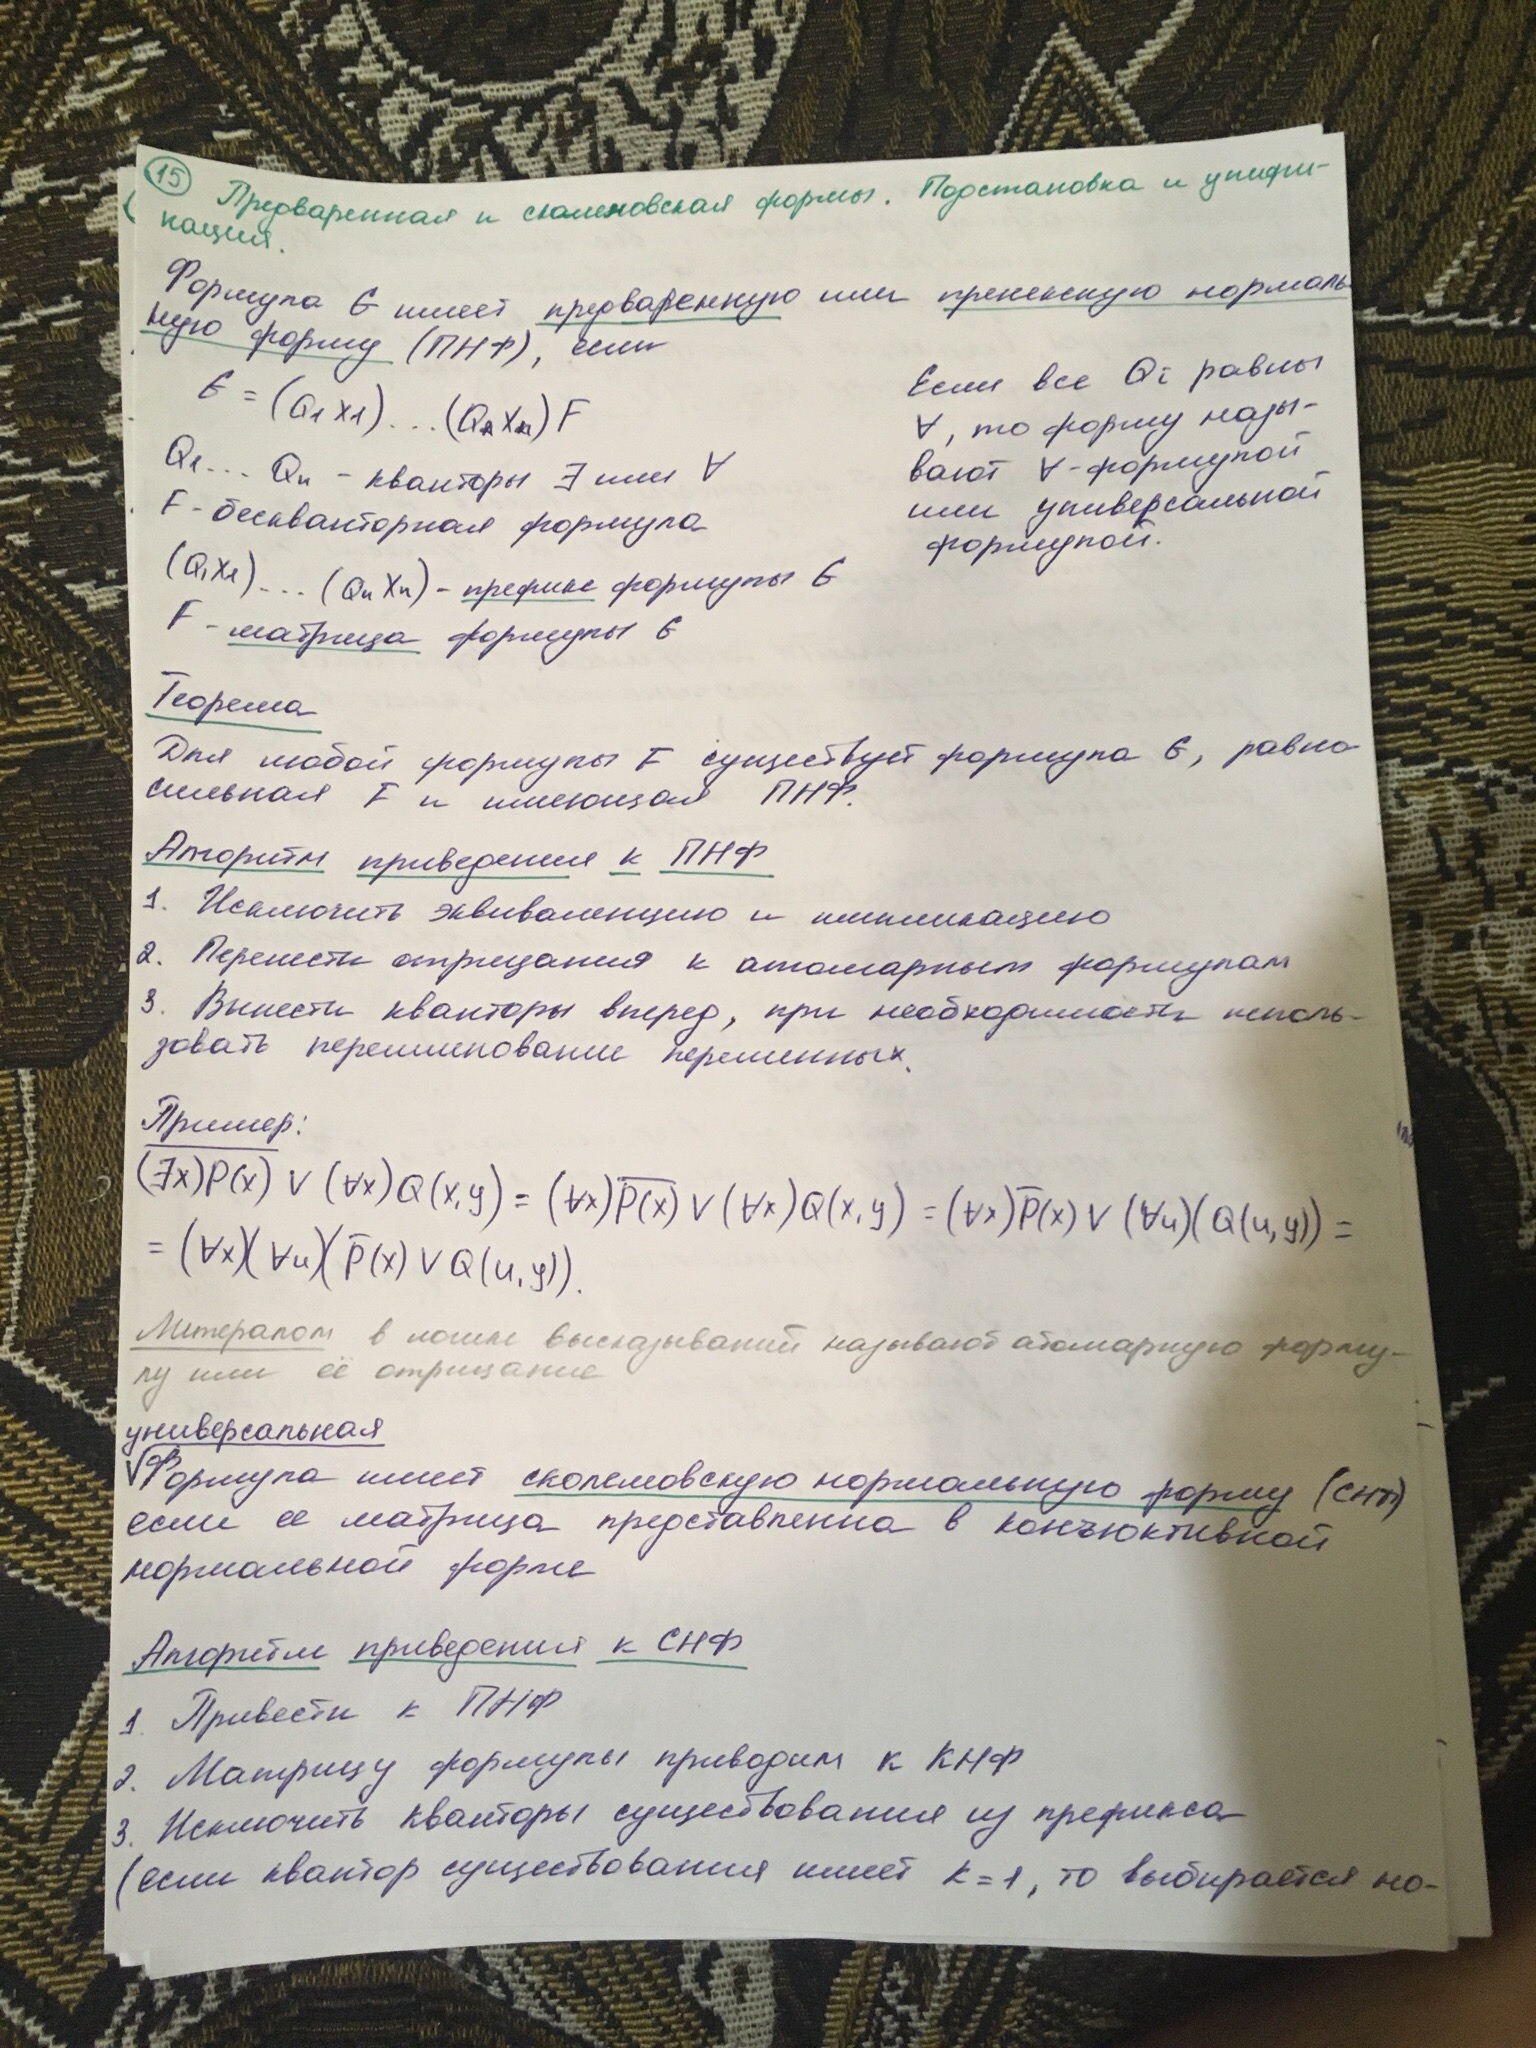 15 Предваренная и сколемовская формы. Подстановка и унифи-
кация.
Формула G имеет предваренную или пренексную нормаль
ную форму (ПНФ), если
G = (Q1 x1)...(Qn xn) F
Q1... Qn - кванторы ∃ или ∀
F - бескванторная формула
(Q1x1)...(Qn xn) - префикс формулы G
F - матрица формулы G
Если все Qi равны
∀, то форму назы-
вают ∀-формулой
или универсальной
формулой.
Теорема
Для любой формулы F существует формула G, равно
сильная F и имеющая ПНФ.
Алгоритм приведения к ПНФ
1. Исключить эквиваленцию и импликацию
2. Перенести отрицания к атомарным формулам
3. Вынести кванторы вперед, при необходимости исполь-
зовать переименование переменных.
Пример:
(∃x)P(x)̅ ∨ (∀x)Q(x,y) = (∀x)P(x)̅ ∨ (∀x)Q(x,y) = (∀x)P̅(x) ∨ (∀u)(Q(u,y)) =
= (∀x)(∀u)(P̅(x) ∨ Q(u,y)).
Литералом в логике высказываний называют атомарную форму-
лу или её отрицание
универсальная
√Формула имеет сколемовскую нормальную форму (СНФ)
если ее матрица представленна в конъюктивной
нормальной форме
Алгоритм приведения к СНФ
1. Привести к ПНФ
2. Матрицу формулы приводим к КНФ
3. Исключить кванторы существования из префикса
(если квантор существования имеет k=1, то выбирается но-